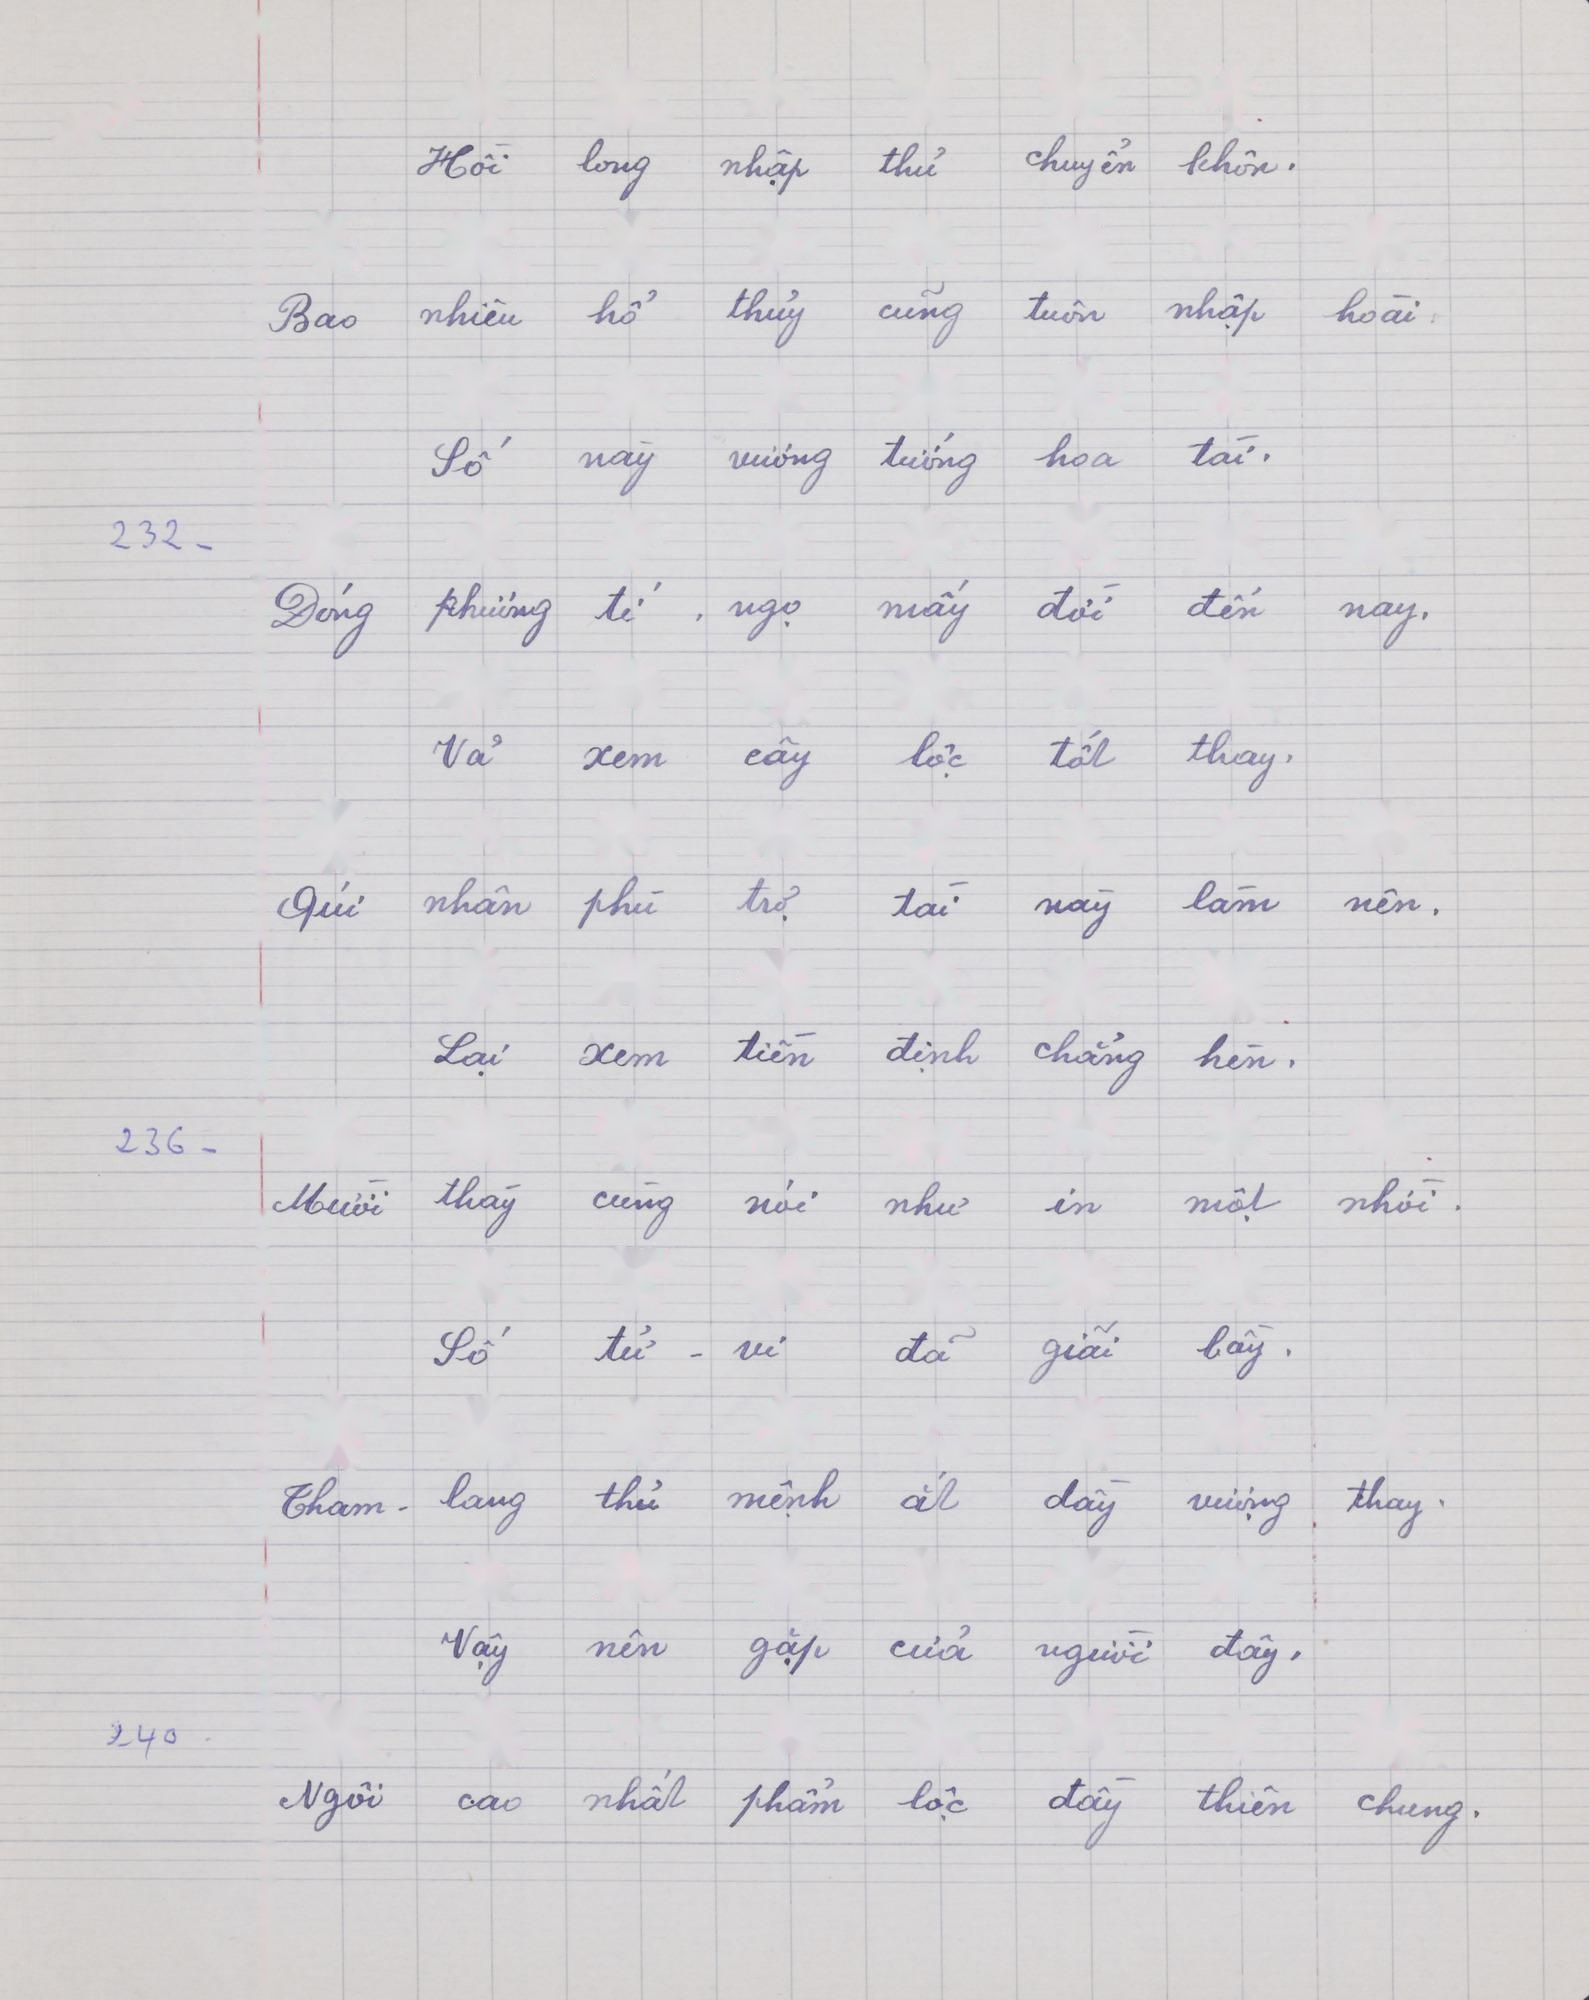 Hồi long nhập thủ chuyển khôn.
Bao nhiêu hổ thủy cũng tuôn nhập hoài.
Số này vương tướng hoa tài.
232-
Dóng phương tí, ngọ mấy đời đến nay.
Vả xem cây lộc tốt thay.
Qúi nhân phù trợ tài này làm nên.
Lại xem tiền định chẳng hèn.
236-
Mười thầy cùng nói như in một nhời.
Số tử-vi đã giãi bầy.
Tham-lang thủ mệnh ắt dầy vượng thay.
Vậy nên gặp cửa người đây.
240
Ngôi cao nhất phẩm lộc đầy thiên chung.